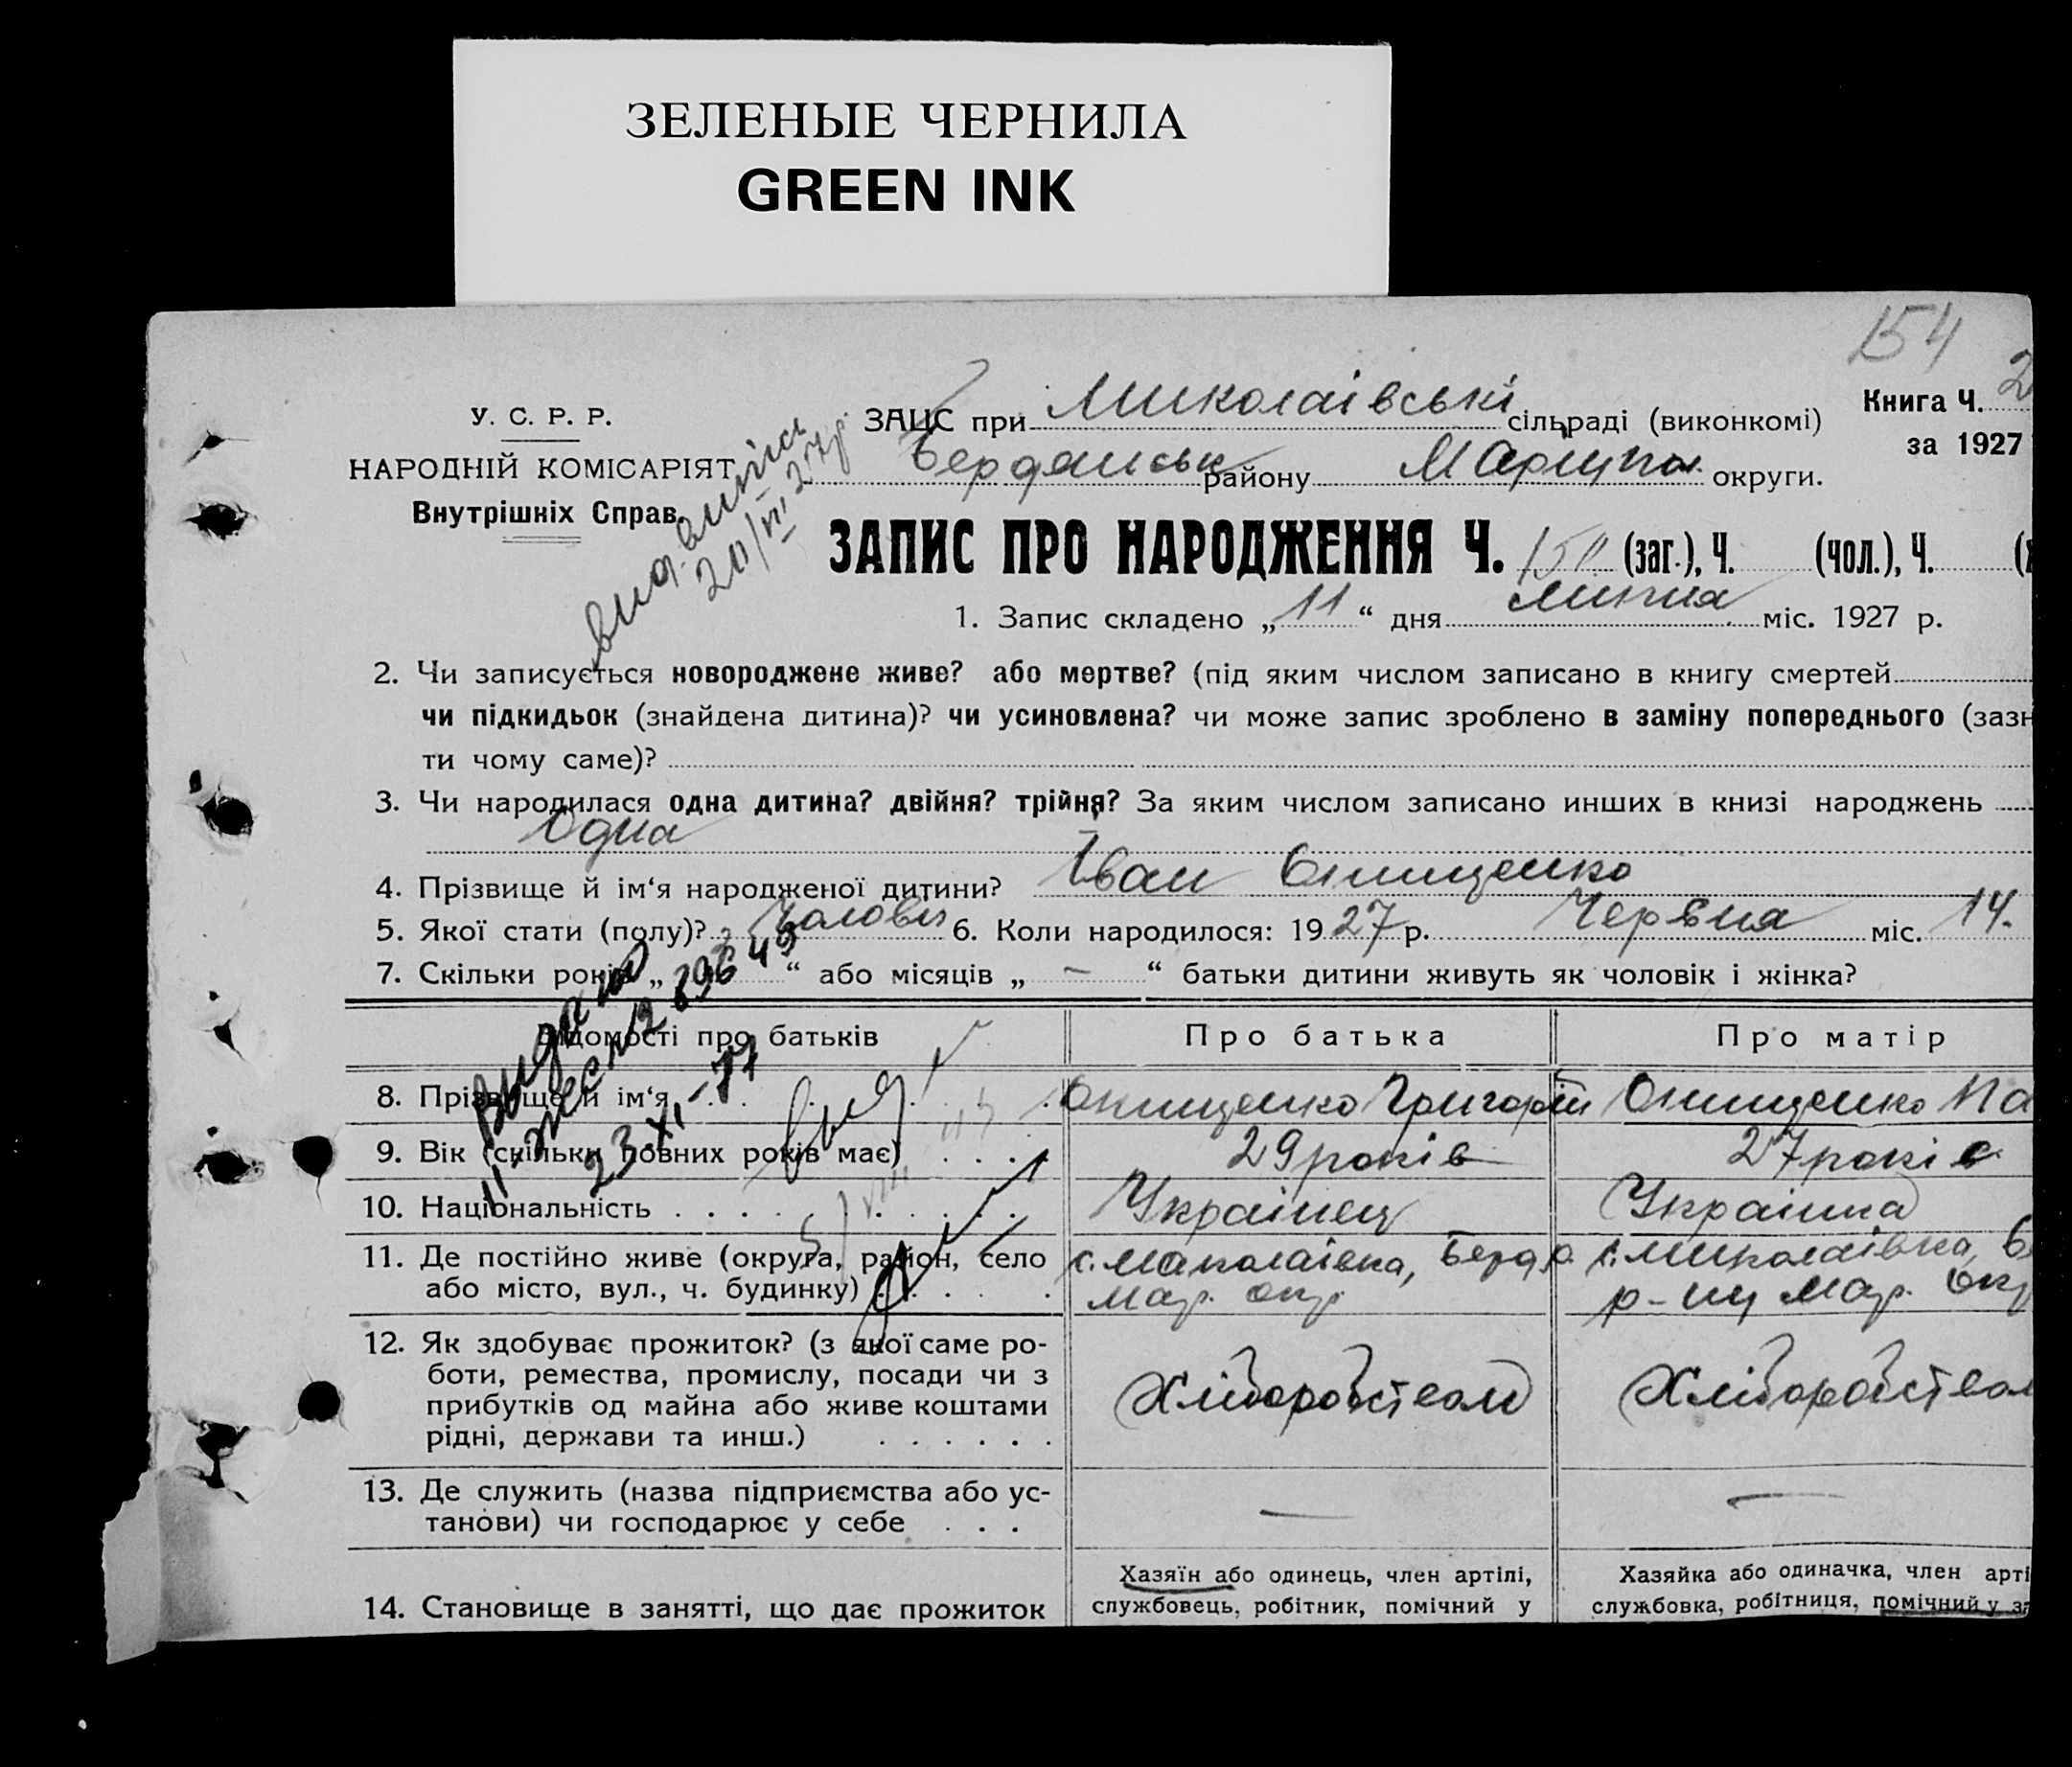 ЗЕЛЕНЫЕ ЧЕРНИЛА
GREEN INK
154
Книга Ч. 2
за 1927
У. С. Р. Р.
НАРОДНІЙ КОМІСАРІЯТ
Внутрішніх Справ
ЗАЦС при Миколаівські сільраді (виконкомі)
Бердянськ району Маріупол. округи.
ЗАПИС ПРО НАРОДЖЕННЯ Ч. 150 (заг.), Ч. (чол.), Ч.
1. Запис складено „ 11 “ дня липня міс. 1927 р.
2. Чи записується новороджене живе? або мертве? (під яким числом записано в книгу смертей
чи підкидьок (знайдена дитина)? чи усиновлена? чи може запис зроблено в заміну попереднього (зазн
ти чому саме)?
3. Чи народилася одна дитина? двійня? трійня? За яким числом записано инших в книзі народжень
Одна
4. Прізвище й ім‘я народженої дитини? Іван Онищенко
5. Якої стати (полу)? Чоловіч 6. Коли народилося: 1927 р. Червня міс. 14.
7. Скільки років „ “ або місяців „ – “ батьки дитини живуть як чоловік і жінка?
Відомості про батьків Про батька Про матір
8. Прізвище й ім‘я Онищенко Григорій Онищенко Па
9. Вік (скільки повних років має) 29 років 27 років
10. Національність Украінец Украінка
11. Де постійно живе (округа, район, село с. Маколаівка, Берд р. с. Миколаівка, Б
або місто, вул., ч. будинку) Мар. окр. р-ну Мар. Окр
12. Як здобуває прожиток? (з якої саме ро-
боти, ремества, промислу, посади чи з Хліборобством Хліборобством
прибутків од майна або живе коштами
рідні, держави та инш.)
13. Де служить (назва підприємства або ус- — —
танови) чи господарює у себе
Хазяїн або одинець, член артілі, Хазяйка або одиначка, член арті
14. Становище в занятті, що дає прожиток службовець, робітник, помічний у службовка, робітниця, помічний у з
Видано
23.XI-77